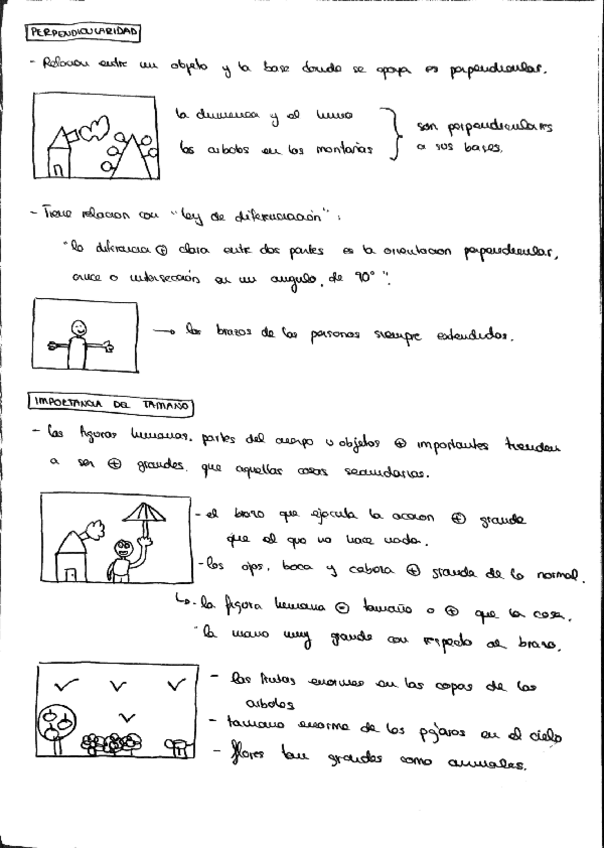 PERPENDICULARIDAD
- Relacion entre un objeto y la base donde se apoya es perpendicular.
la chimenea y el humo
los arboles en las montañas
son perpendiculares
a sus bases.
- Tiene relacion con "Ley de diferenciación":
"la diferencia ⊕ clara entre dos partes es la orientacion perpendicular,
cruce o intersección en un angulo, de 90°".
→ los brazos de las personas siempre extendidos.
IMPORTANCIA DEL TAMAÑO
- Las figuras humanas, partes del cuerpo u objetos ⊕ importantes tienden
a ser ⊕ grandes, que aquellas cosas secundarias.
- el brazo que ejecuta la accion ⊕ grande
que el que no hace nada.
- los ojos, boca y cabeza ⊕ grande de lo normal.
↳ - la figura humana ⊖ tamaño o ⊕ que la casa.
- la mano muy grande con respecto al brazo.
- las frutas enormes en las copas de los
arboles
- tamano enorme de los pájaros en el cielo
- flores tan grandes como animales.